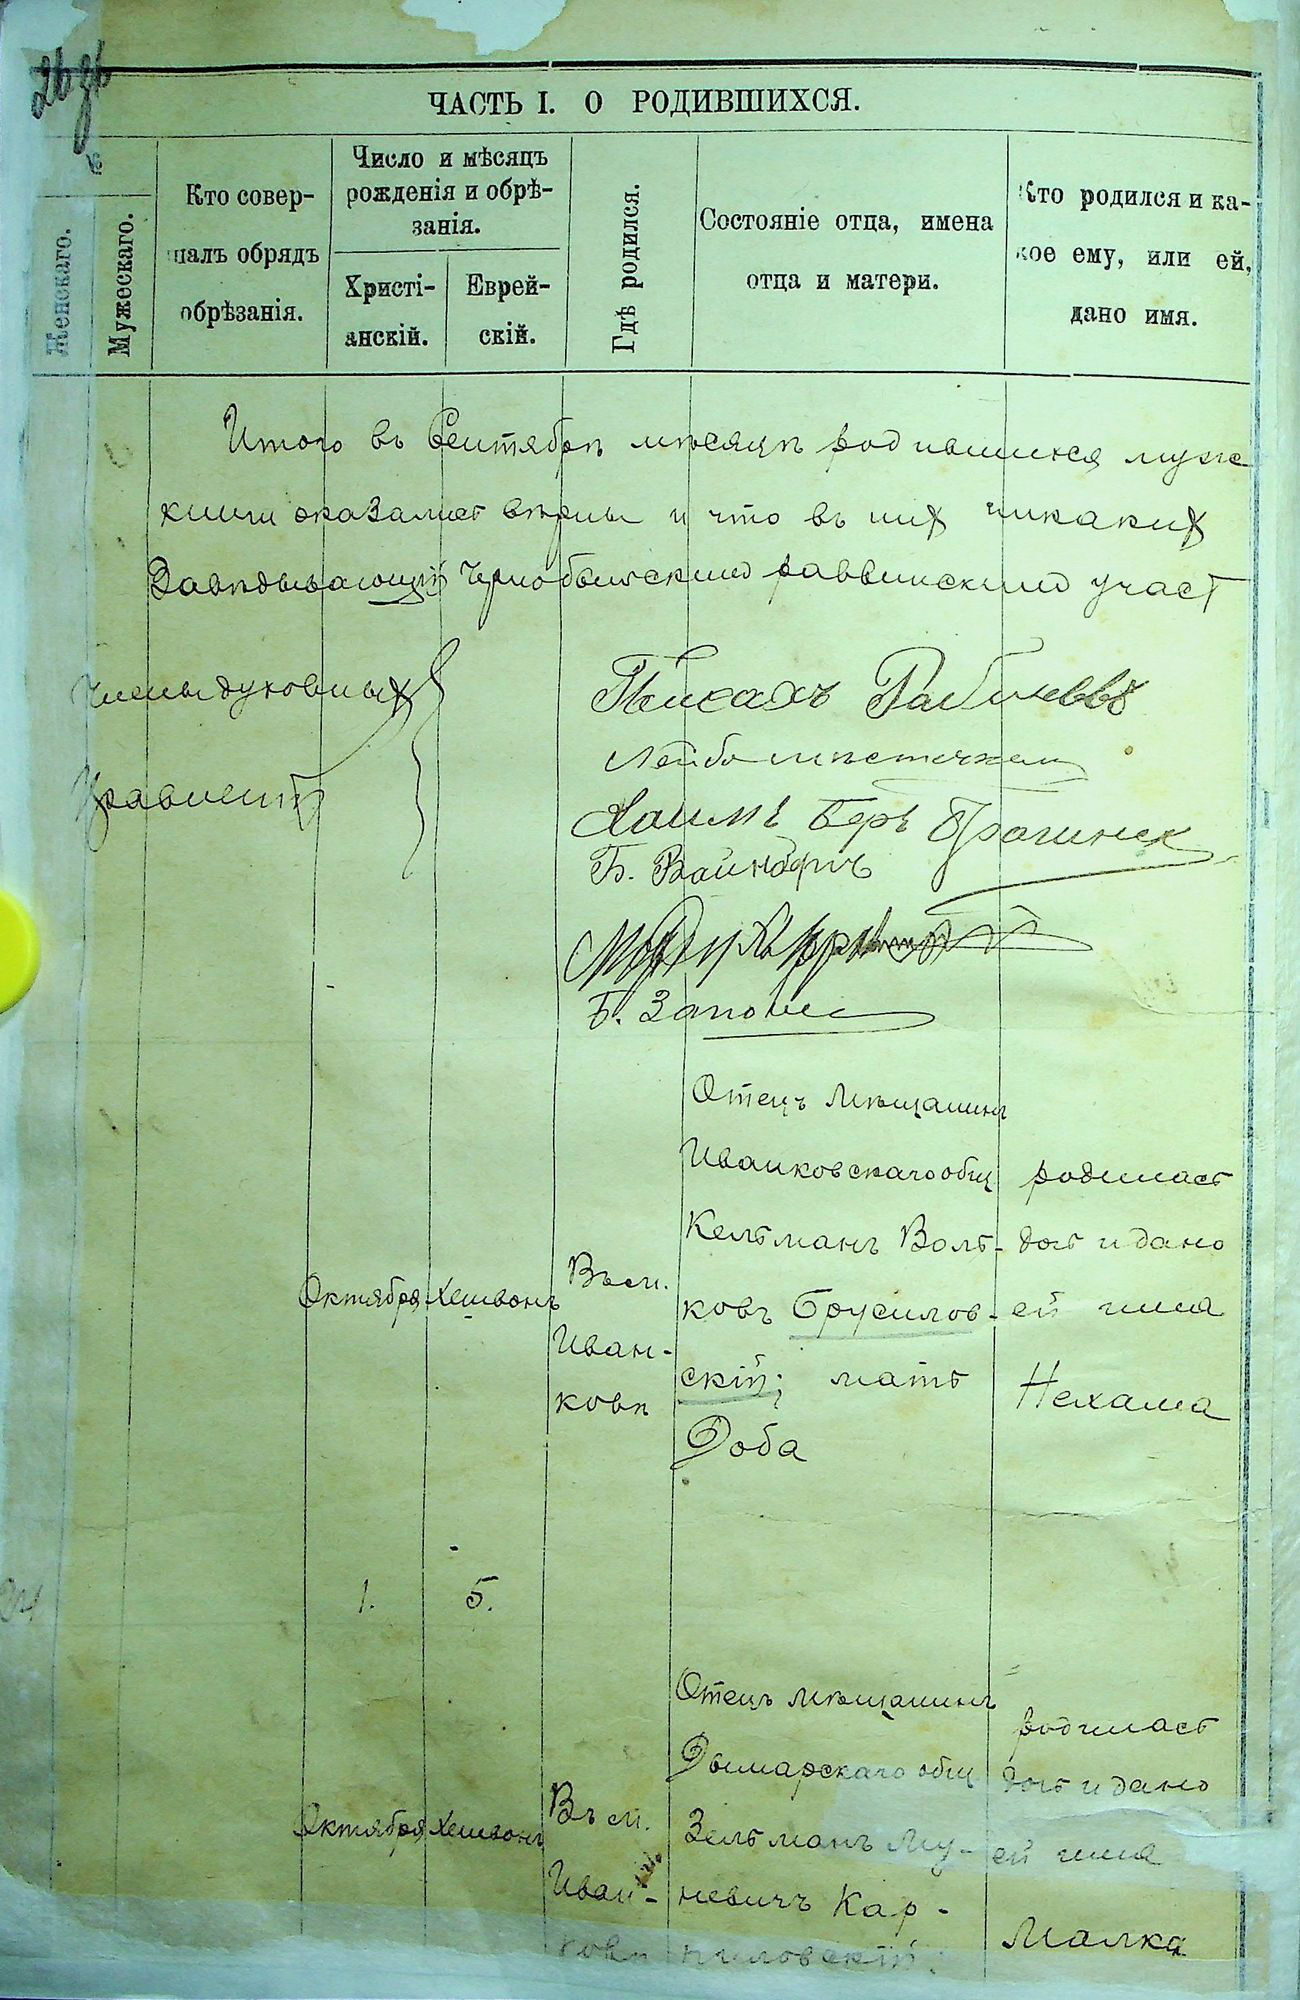 ЧАСТЬ I. О РОДИВШИХСЯ.
Женскаго.
Мужескаго.
Кто совер-
шалъ обрядъ
обрѣзанія.
Число и мѣсяцъ
рожденія и обрѣ-
занія.
Христі-
анскій.
Еврей-
скій.
Гдѣ родился.
Состояніе отца, имена
отца и матери.
Кто родился и ка-
кое ему, или ей,
дано имя.
Итого въ Сентябрѣ мѣсяцѣ родившихся муже
книги оказались вѣрны и что въ них никаких
Завѣдывающій Чернобыльскимъ раввинскимъ участ
Члены духовных
Правленій
Хаимъ Беръ
Б.
Октября
Хешвонъ
Въ м.
Иван-
ковѣ
Отецъ мѣщанинъ
Иванковскаго общ
Кельманъ Воль-
ковъ Брусилов-
скій; мать
Доба
родилась
дочь и дано
ей имя
Нехама
1.
5.
Октября
Хешвонъ
Въ м.
Иван-
ковѣ
Отецъ мѣщанинъ
Дымарскаго общ
Зельманъ Му-
невичъ Кар-
ниловскій;
родилась
дочь и дано
ей имя
Малка